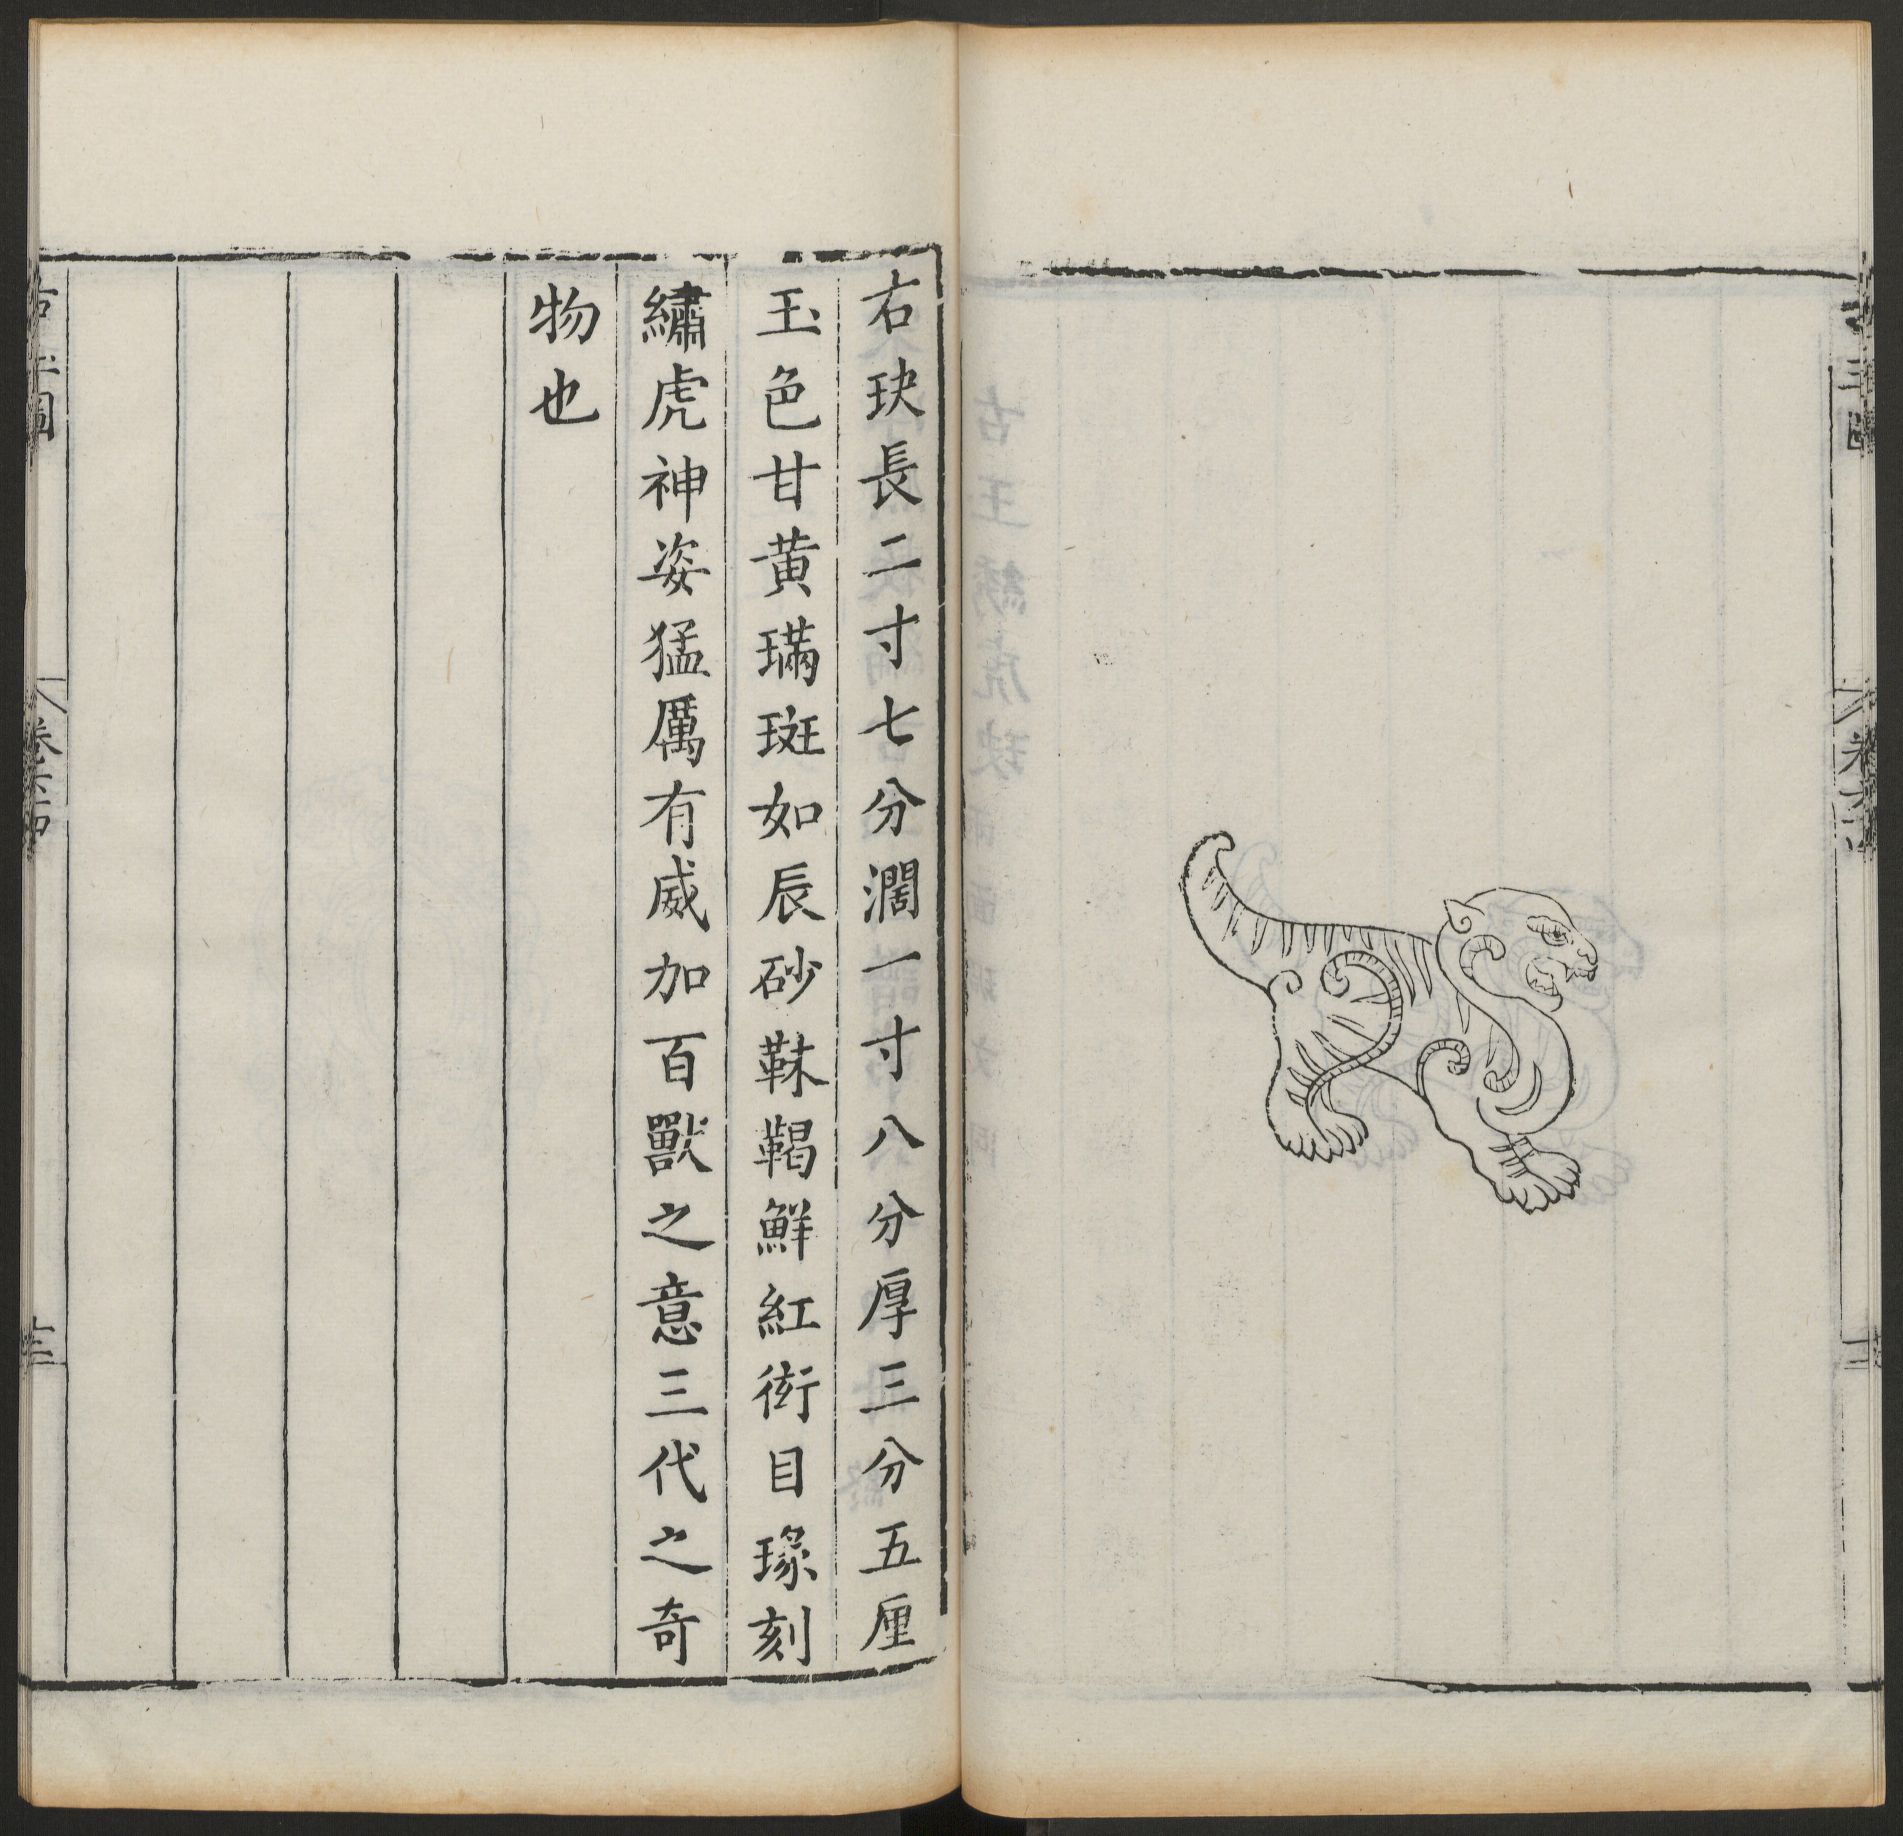 右玦長二寸七分濶一寸八分厚三分五厘
玉色甘黄璊斑如辰砂靺鞨鮮紅衒目瑑刻
繡虎神姿猛厲有威加百獸之意三代之奇
物也